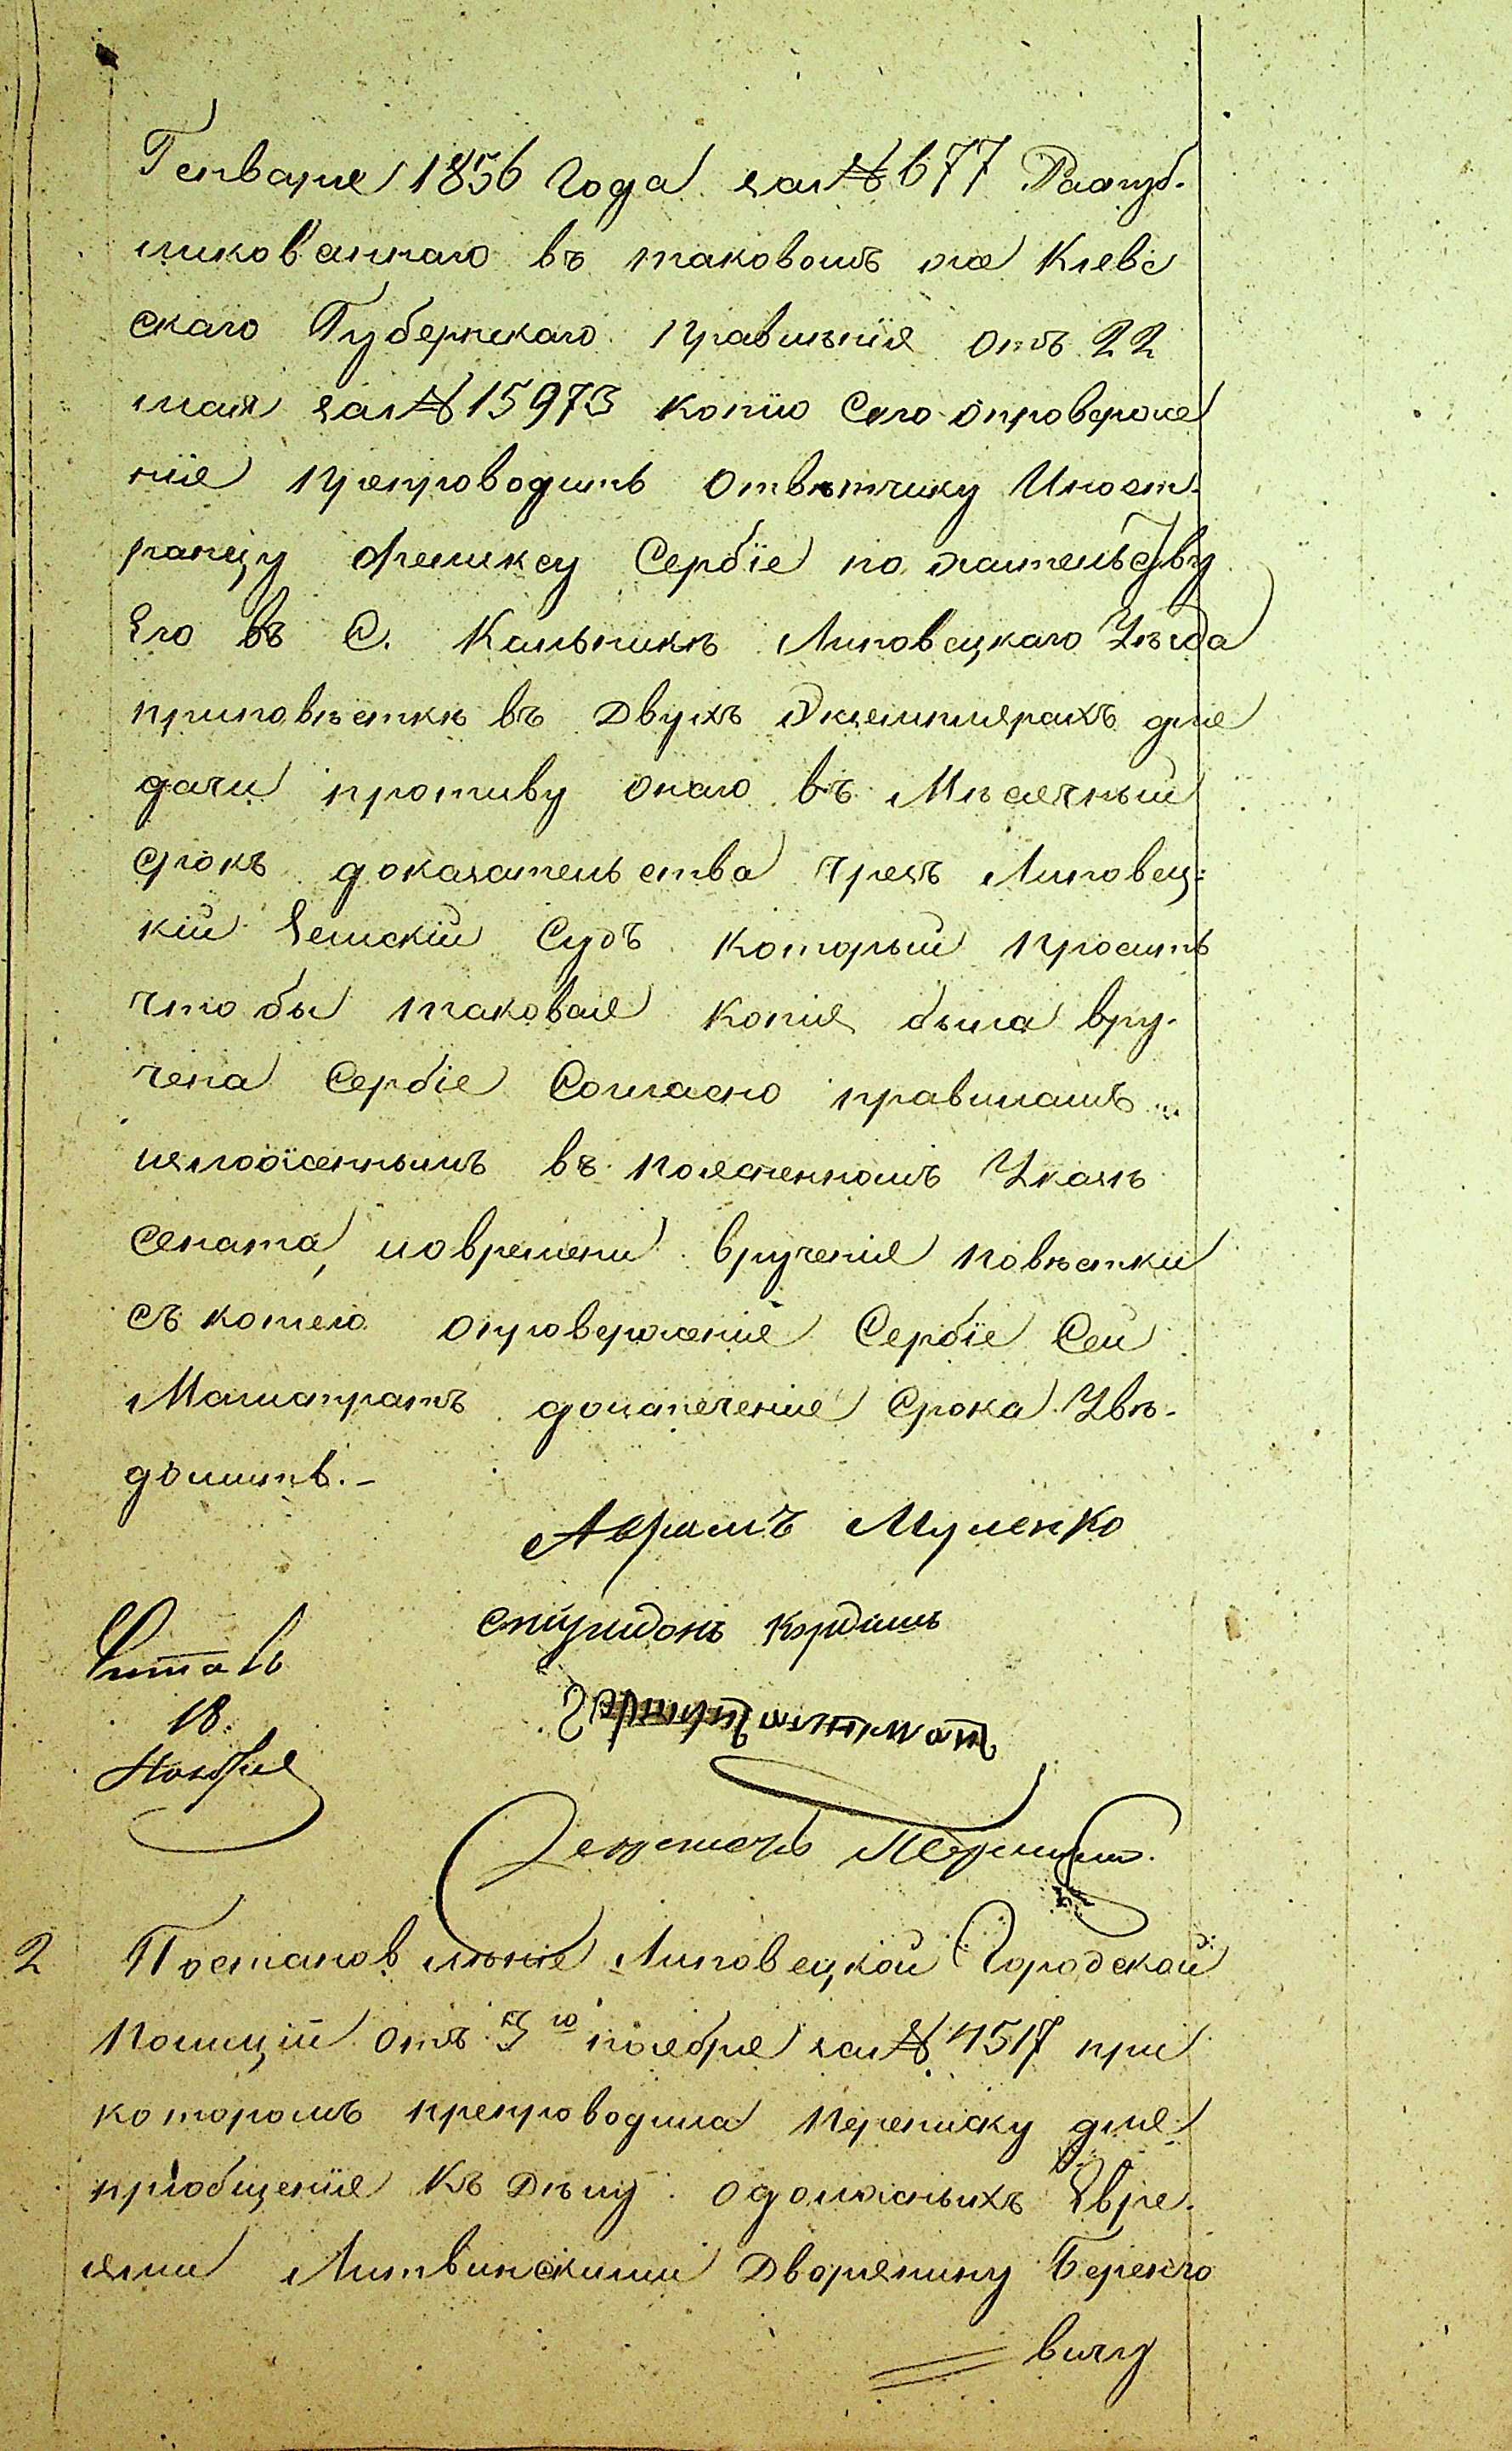 Генваря 1856 года за № 677 Распуб-
ликованнаго въ таковомъ же Кіевс
скаго Губернскаго правленія отъ 22
мая за № 15973 копію сего опроверже
нія препроводить отвѣтчику Иност-
ранцу Феликсу Сербіе по жительству
Его въ С. Кальникѣ Липовецкаго Уѣзда
приповѣсткѣ въ двухъ Экземплярахъ для
дачи противу онаго въ Мѣсячный
срокъ доказательства чрезъ Липовец:
кій Земскій Судъ который просить
что бы таковая копія была вру-
чена Сербіе Согласно правиламъ
изложеннымъ въ поясненномъ Указѣ
Сената, иовремени врученія повѣстки
съ копіею опроверженія Сербіе Сей
Магистратъ доистеченія Срока Увѣ-
домить.-
Аврамъ Муленко
спиридонъ Кордышъ
Читалъ
18
Ноября
2 Постановлѣніе Липовецкой Городской
Полиціи отъ 3го ноября за № 4517 при
которомъ препроводила переписку для
пріобщенія къ Дѣлу одолжныхъ Евре-
ями Литвинскими Дворянину Беренго
вичу